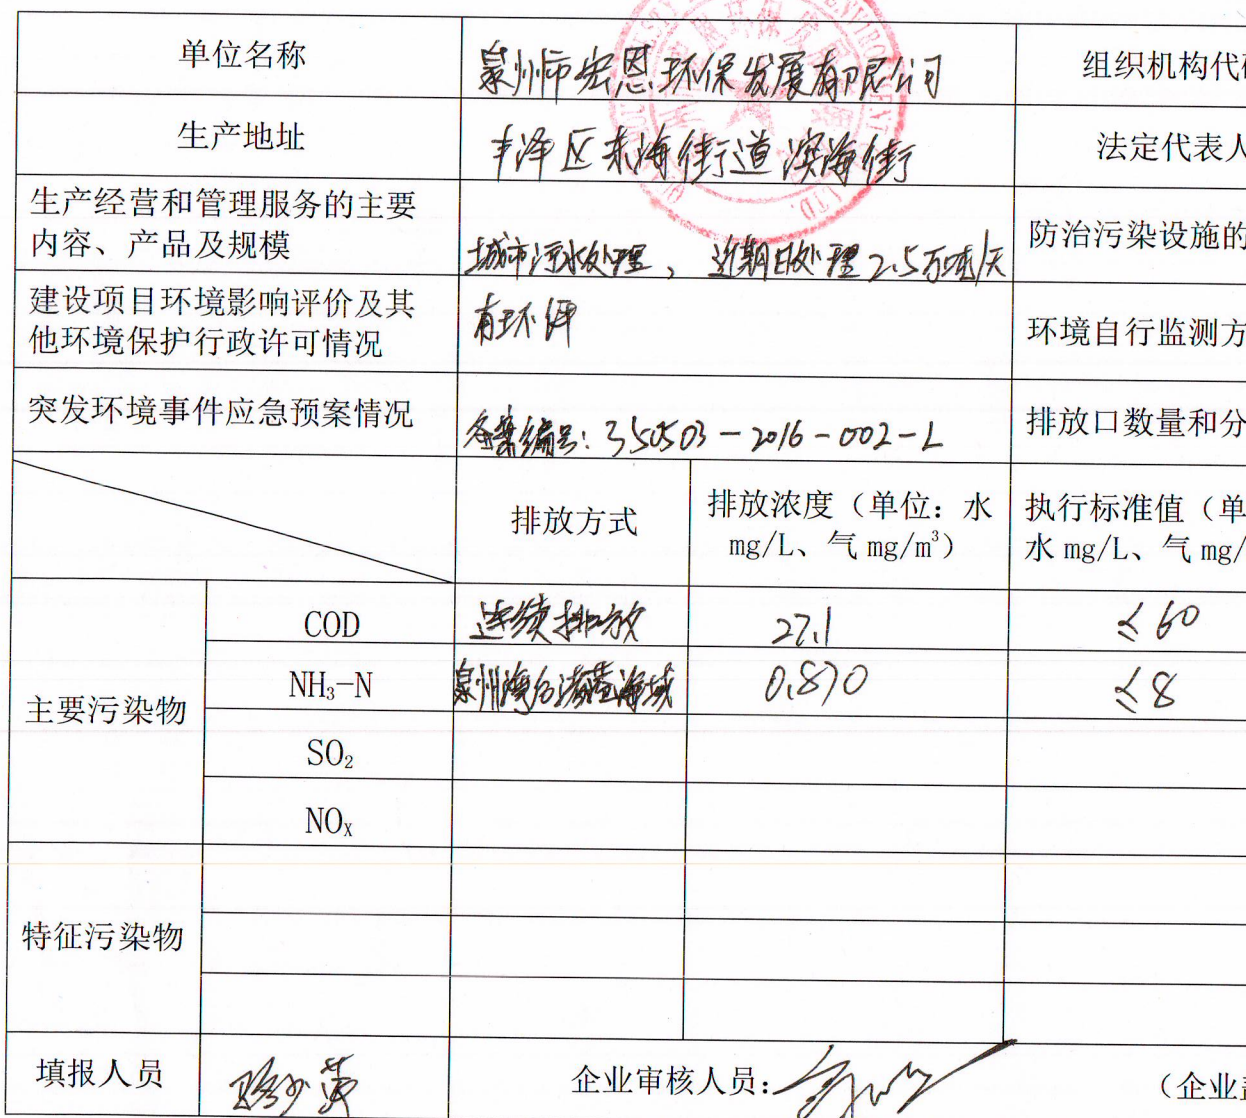 单位名称 泉州市宏恩环保发展有限公司 组织机构代
生产地址 丰泽区东海街道滨海街 法定代表人
生产经营和管理服务的主要
内容、产品及规模 城市污水处理，近期日处理2.5万吨/天 防治污染设施的
建设项目环境影响评价及其
他环境保护行政许可情况 有环评 环境自行监测方
突发环境事件应急预案情况 备案编号：350503-2016-002-L 排放口数量和分
排放方式 排放浓度（单位：水
mg/L、气 mg/m³） 执行标准值（单
水 mg/L、气 mg/
主要污染物
COD 连续排放 27.1 ≤60
NH₃-N 泉州湾台海域 0.870 ≤8
SO₂
NOx
特征污染物
填报人员 企业审核人员： （企业